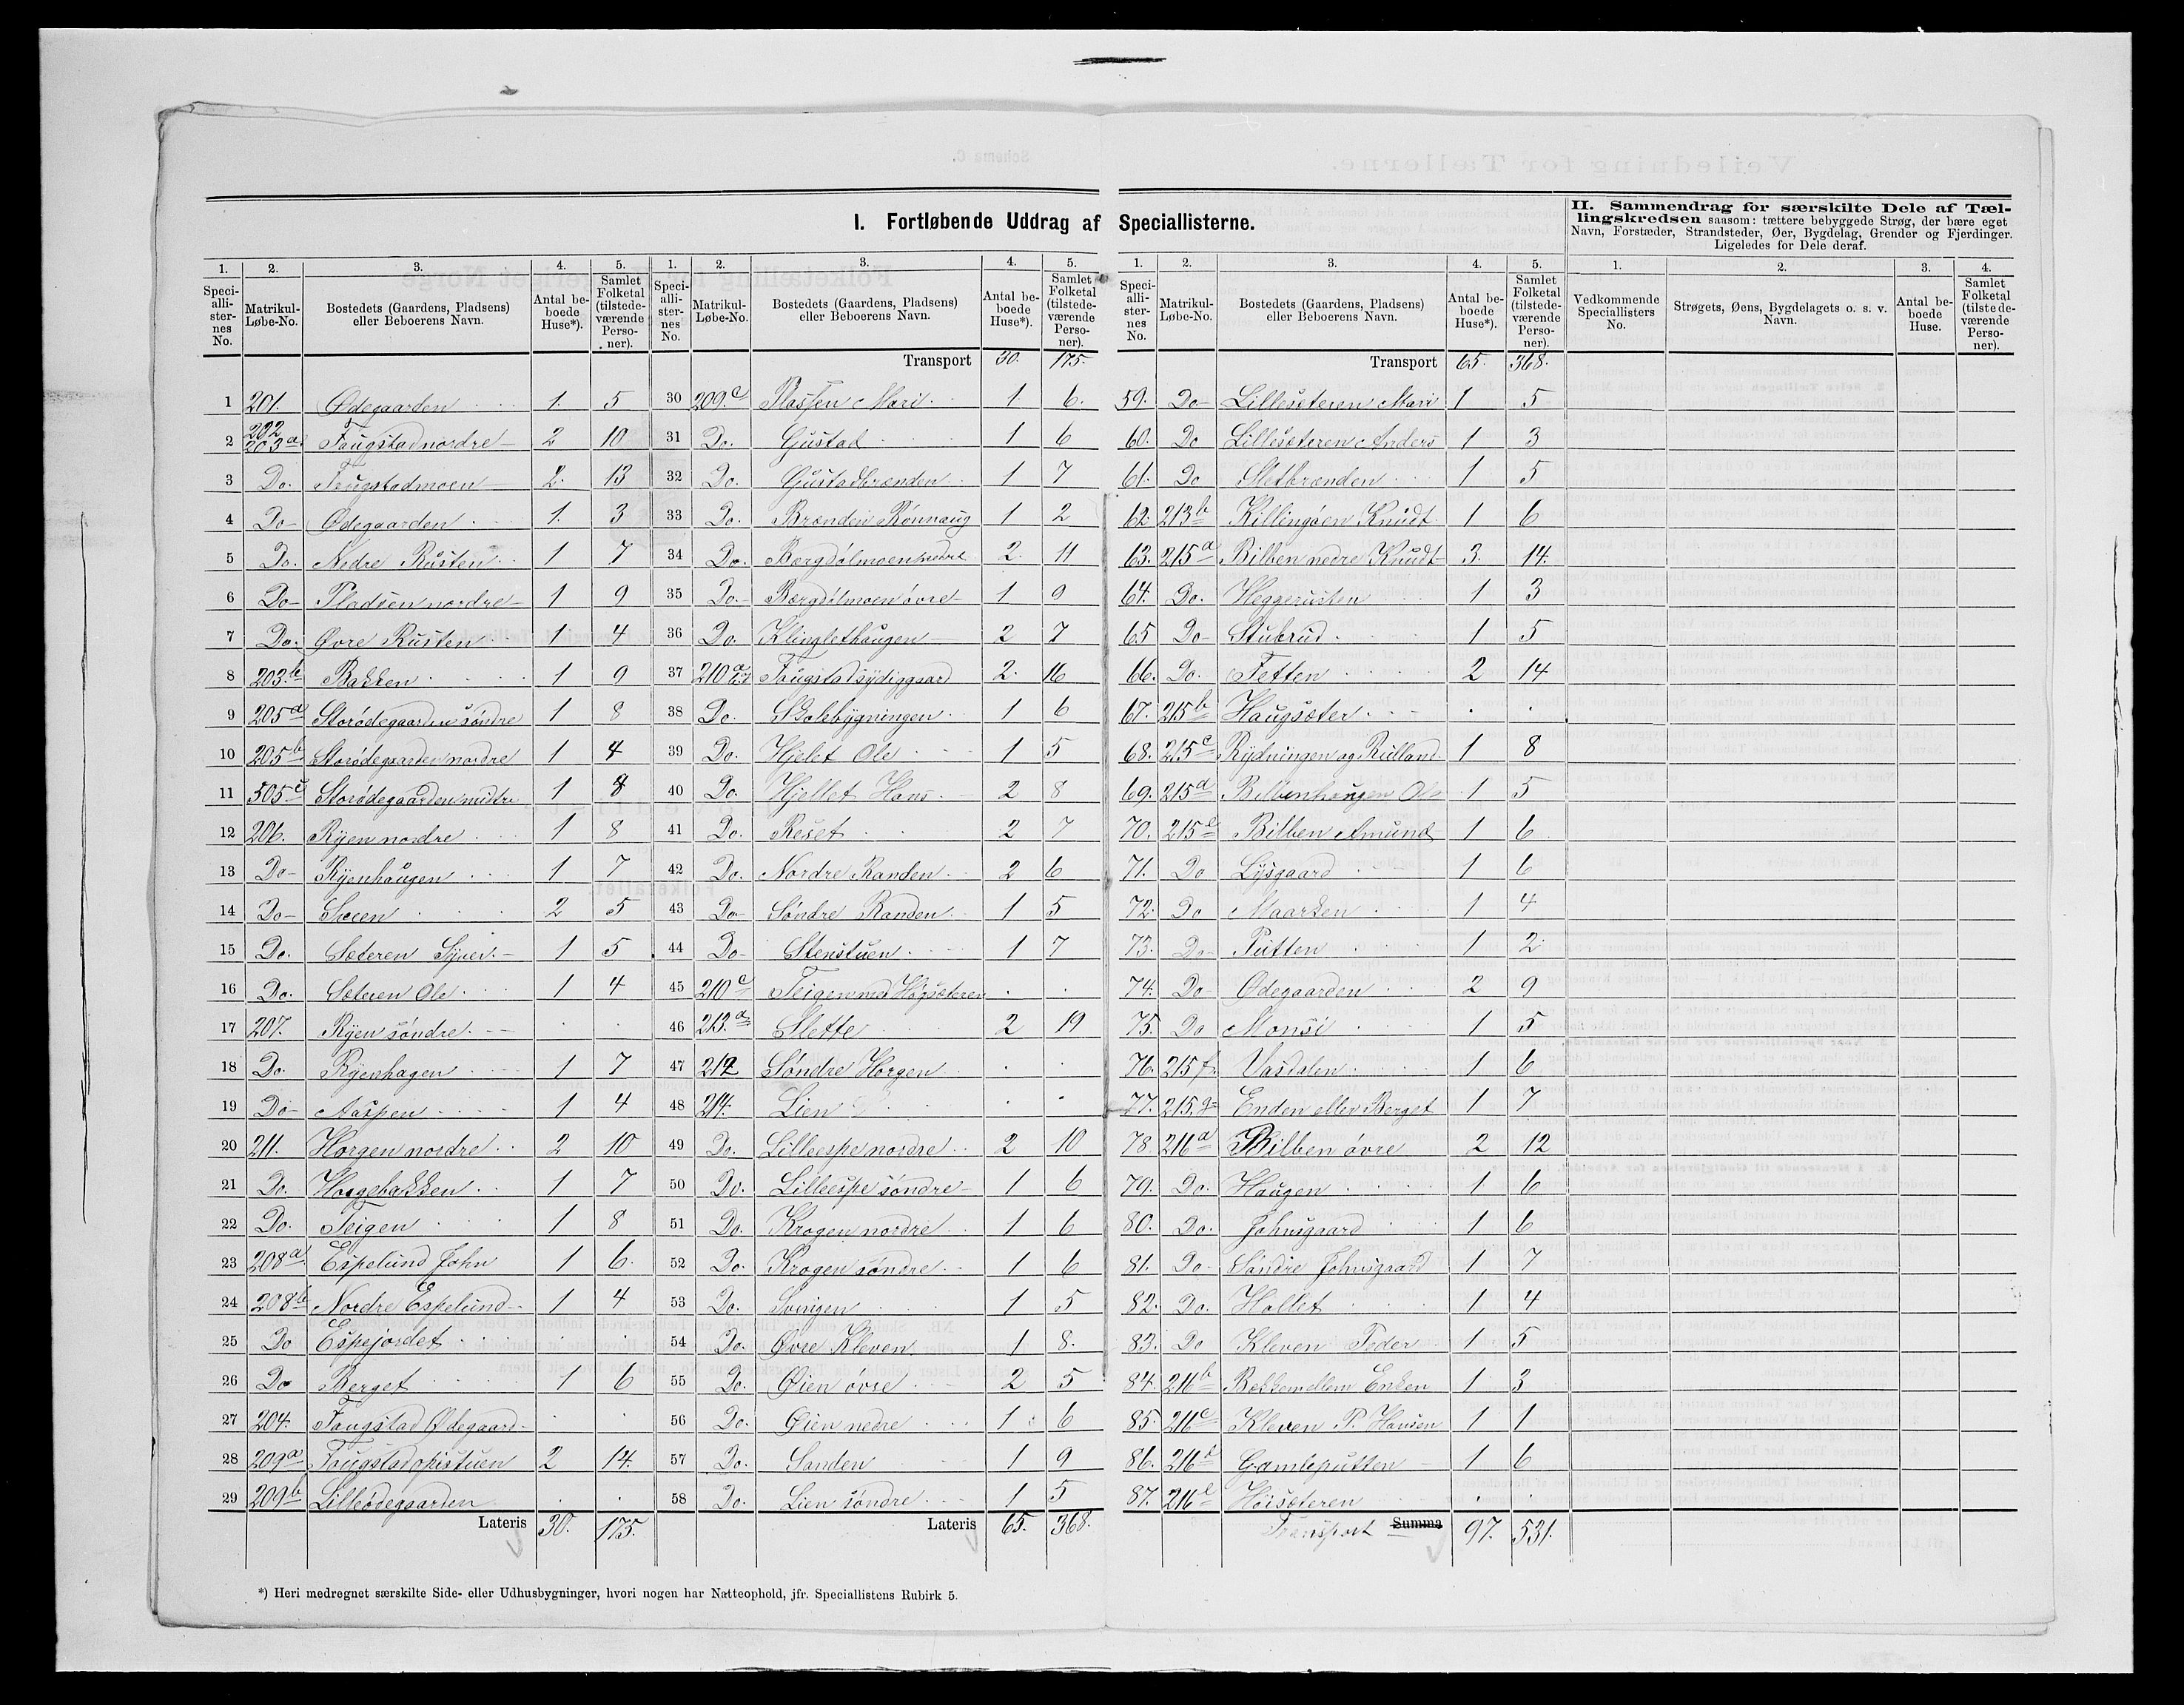 I. Fortløbende Uddrag af Speciallisterne.
II. Sammendrag for særskilte Dele af Tællingskredsen saasom: tættere bebyggede Strøg, der bære eget
Navn, Forstæder, Strandsteder, Øer, Bygdelag, Grender og Fjerdinger.
Ligeledes for Dele deraf.
1. 2. 3. 4. 5.
Speciallisternes No. Matrikul-Løbe-No. Bostedets (Gaardens, Pladsens) eller Beboerens Navn. Antal beboede Huse*). Samlet Folketal (tilstedeværende Personer).
1 201. Ødegaarden 1. 5
2 202 203a Faugstad nordre 2 10
3 Do. Faugstadmoen 2. 13
4 Do Ødegaarden 1. 3
5 Do. Nedre Rusten 1 7
6 Do Pladsen nordre 1 9
7 Do. Øvre Rusten 1 4
8 203.b Bakken 1 9
9 205a Storødegaarden søndre 1 8
10 205b Storødegaarden nordre 1 4
11 505c Storødegaarden midtre 1 8
12 206. Ryen nordre 1 8
13 Do Ryenhaugen 1 7
14 Do 2 5
15 Do. Sæteren 1 5
16 Do. Sæteren Ole 1 4
17 207. Ryen søndre . .
18 Do. Ryenhagen 1 7
19 Do Aaspen 1 4
20 211. Horgen nordre 2 10
21 Do. Horgebakken 1 7
22 Do. Teigen 1 8
23 208a Espelund John 1 6.
24 208b Nordre Espelund 1 4
25 Do Espejordet . .
26 Do Berget 1 6
27 204. Faugstad Ødegaard . .
28 209a Faugstad opistuen 2 14.
29 209b Lilleødegaarden . .
Lateris 30. 175.
1. 2. 3. 4. 5.
Speciallisternes No. Matrikul-Løbe-No. Bostedets (Gaardens, Pladsens) eller Beboerens Navn. Antal beboede Huse*). Samlet Folketal (tilstedeværende Personer).
Transport 30. 175.
30 209.c Plassen Mari 1 6.
31 Do. Gustad 1 6
32 Do. Gustadbrænden 1 7
33 Do. Brænden Rønnaug 1 2
34 Do. Bergdølmoen nedre 2. 11
35 Do. Bergdølmoen øvre 1 9
36 Do. Klinglethaugen 2 7
37 210a Faugstad sydiggaard 2. 16
38 Do. Skolebygningen 1 6
39 Do. Hjelet Ole 1 5
40 Do. Hjellet Hans 2 8
41 Do. Reset 2 7
42 Do. Nordre Randen 2 6
43 Do Søndre Randen 1 5
44 Do Stenstuen 1 7
45 210c Teigen med Høgsæteren . .
46 213.a Slette 2 19
47 212 Søndre Horgen . .
48 214. Lien . .
49 Do. Lilleespe nordre 2 10
50 Do. Lilleespe søndre 1 6
51 Do. Krogen nordre 1 6
52 Do. Krogen søndre 1 6
53 Do. Svingen 1 5
54 Do. Øvre Kleven 1 8.
55 Do. Øien øvre 2 5
56 Do. Øien nedre 1 6
57 Do. Sanden 1 9
58 Do. Lien søndre 1 5
Lateris 65. 368.
1. 2. 3. 4. 5.
Speciallisternes No. Matrikul-Løbe-No. Bostedets (Gaardens, Pladsens) eller Beboerens Navn. Antal beboede Huse*). Samlet Folketal (tilstedeværende Personer).
Transport 65. 368.
59. Do Lillesæteren Mari 1 5
60. Do Lillesæteren Anders 1 3
61. Do Sletbrænden 1 5
62 213b Killingøen Knudt 1 6
63. 215a Bilben nedre Knudt 3. 14.
64. Do. Heggerusten 1 3
65 Do Stubrud 1 5
66. Do. Tetten 2 14
67. 215b Haugsæter . .
68. 215c Rydningen og Rulland 1 8
69. 215d Bilbenhaugen Ole 1 5
70. 215e Bilben Amund 1 6
71. Do Lysgaard 1 6
72. Do Maarken 1 4
73. Do Putten 1 2
74. Do Ødegaarden 2 9
75. Do Monsi 1 5
76. 215f. Vasdalen 1 6
77. 215.g Enden eller Berget 1 7
78. 216a Bilben øvre 2 12
79. Do. Haugen 1 6
80. Do. Johnsgaard 1 6
81. Do Søndre Johnsgaard 1 7
82. Do. Hollet 1 4
83. Do Kleven Peder 1 5
84. 216b Bekkemellem Enken 1 3
85. 216c Kleven P. Hansen 1 1
86. 216d Gamleputten 1 6
87. 216e Høisæteren . .
Transport Summa 97. 531.
1. 2. 3. 4.
Vedkommende Speciallisters No. Strøgets, Øens, Bygdelagets o. s. v. Navn. Antal beboede Huse. Samlet Folketal (tilstedeværende Personer).
*) Heri medregnet særskilte Side- eller Udhusbygninger, hvori nogen har Natteophold, jfr. Speciallistens Rubirk 5.